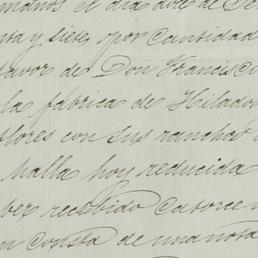 manos el día doce de
nta y siete por cantidad
favor de Don Francisc
la fábrica de Hilados
flores con sus ranchos
Malla hoy reducida
ber recibido catorce
n consta de una nota